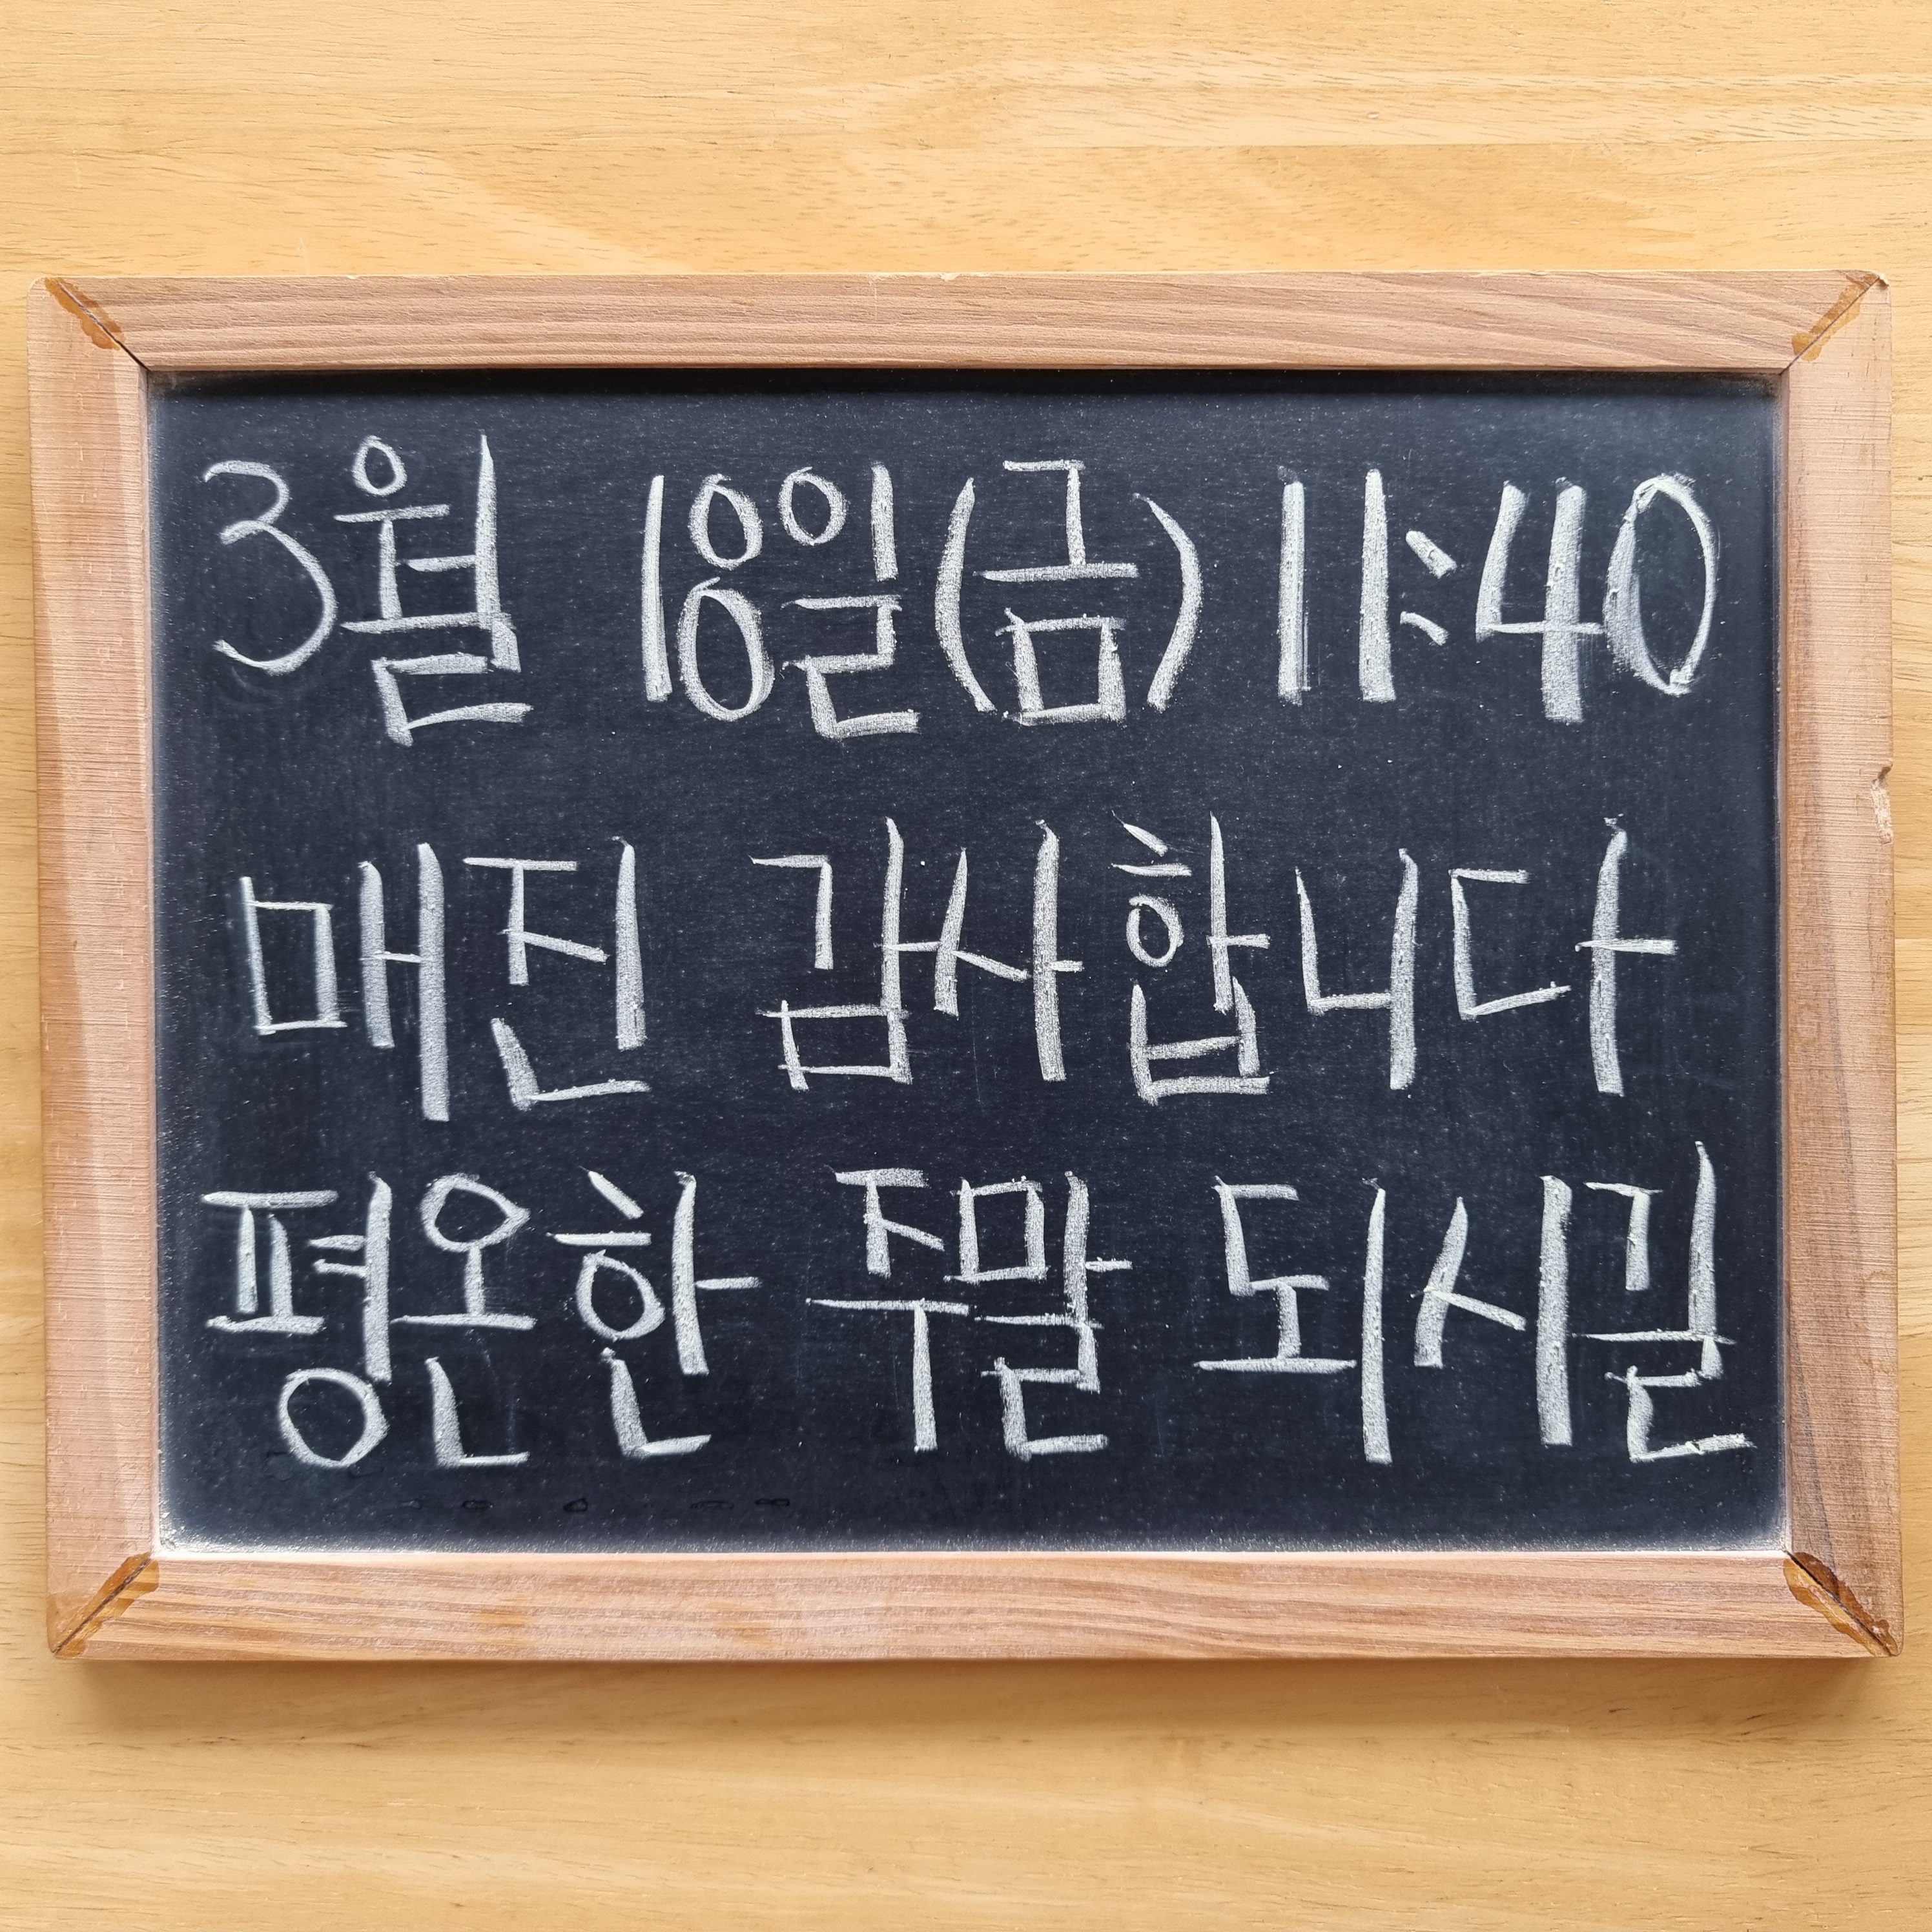 3월 18일(금) 11:40
매진 감사합니다
평온한 주말 되시길